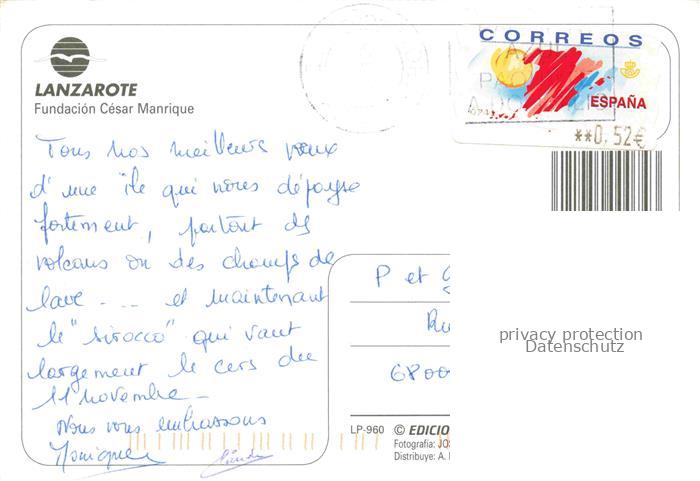 CORREOS
ESPAÑA
**0,52€
LANZAROTE
Fundación César Manrique
Tous nos meilleurs vœux
d'une île qui nous dépayse
fortement, partout des
volcans ou des champs de
lave - - - et maintenant
le "sirocco" qui vaut
largement le cers du
11 novembre -
Nous vous embrassons
Monique
P et
Ru
6800
privacy protection
Datenschutz
LP-960 © EDICIO
Fotografía: JOS
Distribuye: A.